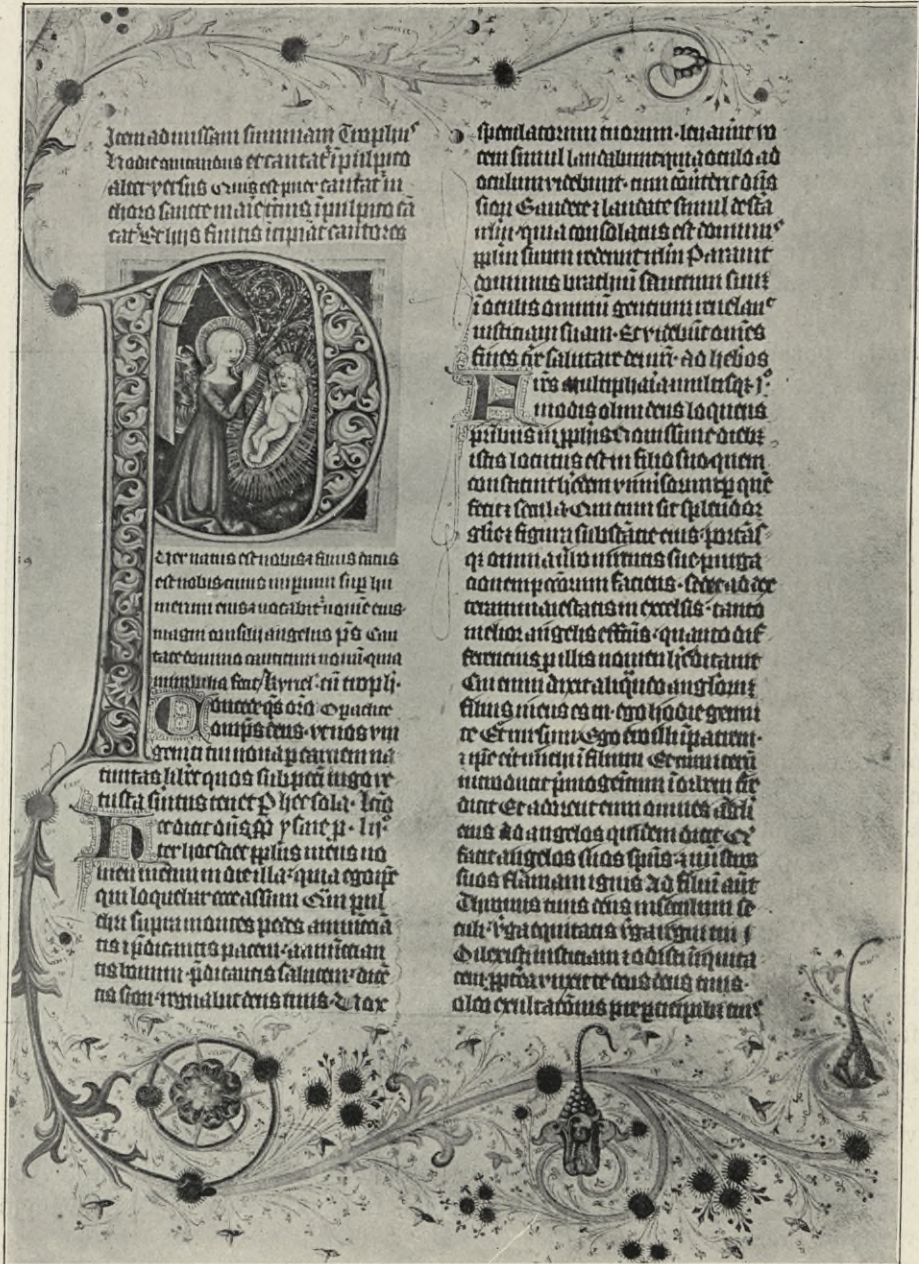 Item ad missam summam
hodie cantandus et cantat ī pulpito
alter versus Quis est puer cantat in
choro sancte ī pulpito cā
tat Et hiis finitis īcipiāt cantores
Puer natus est nobis ⁊ filius datus
est nobis cuius impium sup hu
merum eius ⁊ vocabit nomē eius
magni consilij angelus p̄s Can
tate domino canticum nouū quia
mirabilia fecit kyriel cū tropis
Concede q̄s
omps deus ut nos vni
geniti tui noua p carnem na
tiuitas libet quos sub peccī iugo ve
tusta suitus tenet P
Hec dicit dn̄s ysaie p
ter hoc sciet pplus meus no
men meum in die illa quia ego ip̄e
qui loquebar ecce assum Qm̄ pul
chri supra montes pedes annūciā
tis ⁊ p̄dicantis pacem annūcian
tis bonum p̄dicantis salutem dicē
tis sion regnabit deus tuus Uox
speculatorum tuorum leuauerunt vo
cem simul laudabunt quia oculo ad
oculum videbunt cum cōuūterit dn̄s
sion Gaudete ⁊ laudate simul deserta
irlm quia consolatus est dominus
pplm suum redemit irlm Parauit
dominus brachiū sanctum suū
ī oculis omniū gentium
iusticiam suam Et videbūt omēs
fines tr̄e salutare dei nr̄i ad hebreos
Frēs Multipharia multisqz
modis olim deus loquens
pribus in pphis Nouissime diebz
istis locutus est in filio suo quem
constituit h̄edem vniuisorum p quē
fecit ⁊ secula Qui cum sit splendor
glīe ⁊ figura substācie eius portās
qz omnia vbo uirtutis sue purga
cionem pccorum faciens sedet ad dex
teram maiestatis in excelsis tanto
melior angelis effcūs quanto dif
ferencius p illis nomen h̄editauit
Cui enim dixit aliqn̄do angelorum
filius meus es tu ego hodie genui
te Et rursum Ego ero illi ī patrem
⁊ ip̄e erit michi ī filium Et cum iterū
introducit p̄mogenitum ī orbem tr̄e
dicit Et adorent eum omnes ageli
eius Ad angelos quidem dicit Qui
facit angelos suos sp̄us ⁊ mistros
suos flāmam ignis Ad filiū aūt
Thronus tuus deus in seculum se
culi v̄ga equitatis v̄ga regni tui
Dilexisti iusticiam ⁊ odisti iniquita
tem pptea vnxit te deus deus tuus
oleo exultacōnis pre pticipibus tuis